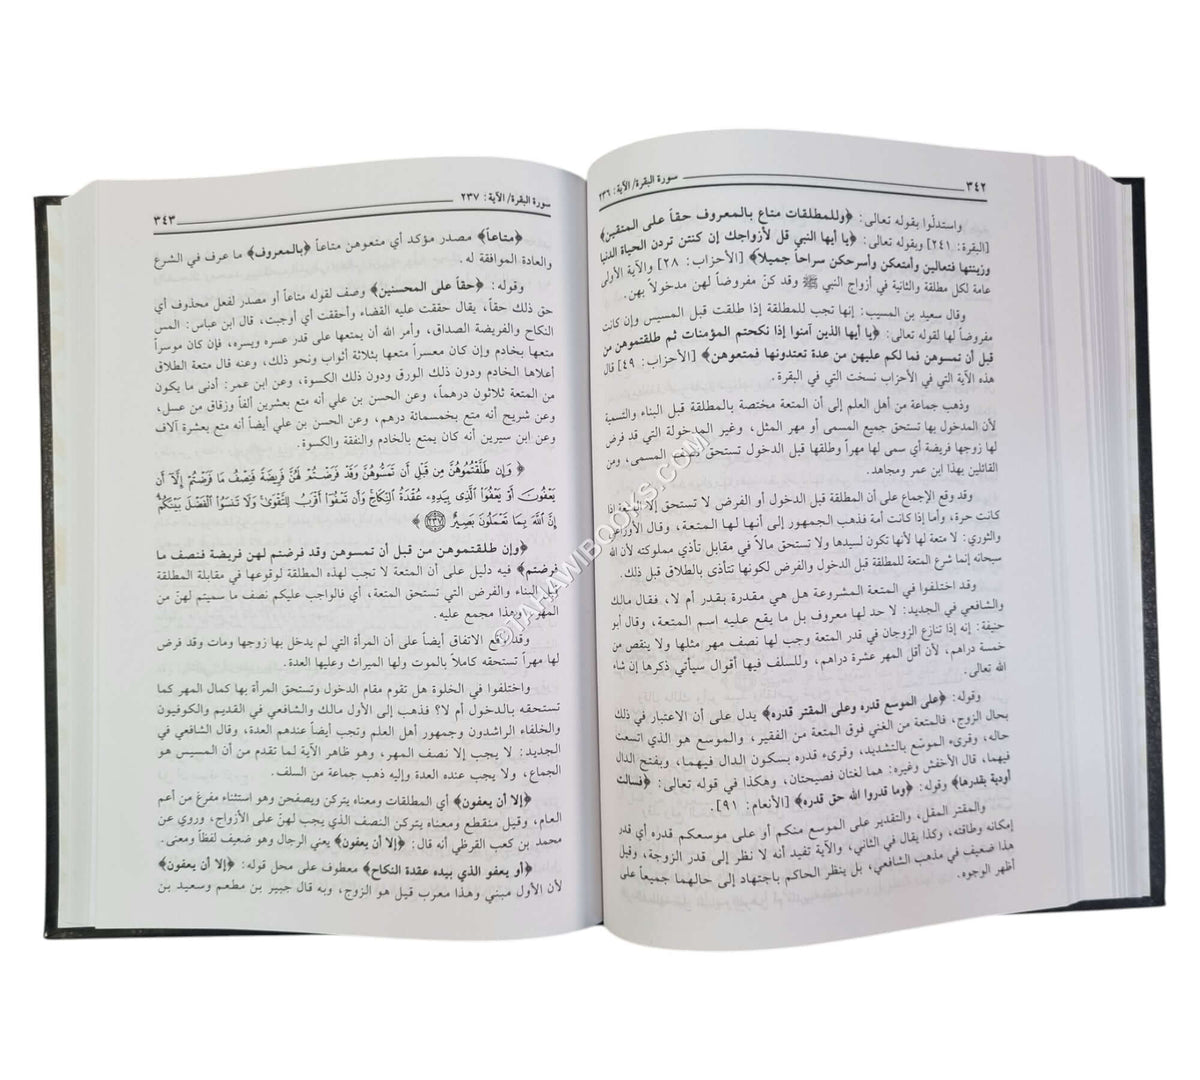 ٣٤٢
سورة البقرة/ الآية: ٢٣٦
واستدلّوا بقوله تعالى: ﴿وللمطلقات متاع بالمعروف حقاً على المتقين﴾
[البقرة: ٢٤١] وبقوله تعالى: ﴿يا أيها النبي قل لأزواجك إن كنتن تردن الحياة الدنيا
وزينتها فتعالين وأمتعكن وأسرحكن سراحاً جميلاً﴾ [الأحزاب: ٢٨] والآية الأولى
عامة لكل مطلقة والثانية في أزواج النبي ﷺ وقد كنّ مفروضاً لهن مدخولاً بهن.
وقال سعيد بن المسيب: إنها تجب للمطلقة إذا طلقت قبل المسيس وإن كانت
مفروضاً لها لقوله تعالى: ﴿يا أيها الذين آمنوا إذا نكحتم المؤمنات ثم طلقتموهن من
قبل أن تمسوهن فما لكم عليهن من عدة تعتدونها فمتعوهن﴾ [الأحزاب: ٤٩] قال
هذه الآية التي في الأحزاب نسخت التي في البقرة.
وذهب جماعة من أهل العلم إلى أن المتعة مختصة بالمطلقة قبل البناء والتسمية
لأن المدخول بها تستحق جميع المسمى أو مهر المثل، وغير المدخولة التي قد فرض
لها زوجها فريضة أي سمى لها مهراً وطلقها قبل الدخول تستحق نصف المسمى، ومن
القائلين بهذا ابن عمر ومجاهد.
وقد وقع الإجماع على أن المطلقة قبل الدخول أو الفرض لا تستحق إلا المتعة إذا
كانت حرة، وأما إذا كانت أمة فذهب الجمهور إلى أنها لها المتعة، وقال الأوزاعي
والثوري: لا متعة لها لأنها تكون لسيدها ولا تستحق مالاً في مقابل تأذي مملوكته لأن الله
سبحانه إنما شرع المتعة للمطلقة قبل الدخول والفرض لكونها تتأذى بالطلاق قبل ذلك.
وقد اختلفوا في المتعة المشروعة هل هي مقدرة بقدر أم لا، فقال مالك
والشافعي في الجديد: لا حد لها معروف بل ما يقع عليه اسم المتعة، وقال أبو
حنيفة: إنه إذا تنازع الزوجان في قدر المتعة وجب لها نصف مهر مثلها ولا ينقص من
خمسة دراهم، لأن أقل المهر عشرة دراهم، وللسلف فيها أقوال سيأتي ذكرها إن شاء
الله تعالى.
وقوله: ﴿على الموسع قدره وعلى المقتر قدره﴾ يدل على أن الاعتبار في ذلك
بحال الزوج، فالمتعة من الغني فوق المتعة من الفقير، والموسع هو الذي اتسعت
حاله، وقرىء الموسّع بالتشديد، وقرىء قدره بسكون الدال فيهما، وبفتح الدال
فيهما، قال الأخفش وغيره: هما لغتان فصيحتان، وهكذا في قوله تعالى: ﴿فسالت
أودية بقدرها﴾ وقوله: ﴿وما قدروا الله حق قدره﴾ [الأنعام: ٩١].
والمقتر المقل، والتقدير على الموسع منكم أو على موسعكم قدره أي قدر
إمكانه وطاقته، وكذا يقال في الثاني، والآية تفيد أنه لا نظر إلى قدر الزوجة، وقيل
هذا ضعيف في مذهب الشافعي، بل ينظر الحاكم باجتهاد إلى حالهما جميعاً على
أظهر الوجوه.
سورة البقرة/ الآية: ٢٣٧
٣٤٣
﴿متاعاً﴾ مصدر مؤكد أي متعوهن متاعاً ﴿بالمعروف﴾ ما عرف في الشرع
والعادة الموافقة له.
وقوله: ﴿حقاً على المحسنين﴾ وصف لقوله متاعاً أو مصدر لفعل محذوف أي
حق ذلك حقاً، يقال حققت عليه القضاء وأحققت أي أوجبت، قال ابن عباس: المس
النكاح والفريضة الصداق، وأمر الله أن يمتعها على قدر عسره ويسره، فإن كان موسراً
متعها بخادم وإن كان معسراً متعها بثلاثة أثواب ونحو ذلك، وعنه قال متعة الطلاق
أعلاها الخادم ودون ذلك الورق ودون ذلك الكسوة، وعن ابن عمر: أدنى ما يكون
من المتعة ثلاثون درهماً، وعن الحسن بن علي أنه متع بعشرين ألفاً وزقاق من عسل،
وعن شريح أنه متع بخمسمائة درهم، وعن الحسن بن علي أيضاً أنه متع بعشرة آلاف
وعن ابن سيرين أنه كان يمتع بالخادم والنفقة والكسوة.
﴿وَإِن طَلَّقْتُمُوهُنَّ مِن قَبْلِ أَن تَمَسُّوهُنَّ وَقَدْ فَرَضْتُمْ لَهُنَّ فَرِيضَةً فَنِصْفُ مَا فَرَضْتُمْ إِلَّا أَن
يَعْفُونَ أَوْ يَعْفُوَا الَّذِي بِيَدِهِ عُقْدَةُ النِّكَاحِ وَأَن تَعْفُوا أَقْرَبُ لِلتَّقْوَى وَلَا تَنسَوُا الْفَضْلَ بَيْنَكُمْ
إِنَّ اللَّهَ بِمَا تَعْمَلُونَ بَصِيرٌ ٢٣٧﴾
﴿وإن طلقتموهن من قبل أن تمسوهن وقد فرضتم لهن فريضة فنصف ما
فرضتم﴾ فيه دليل على أن المتعة لا تجب لهذه المطلقة لوقوعها في مقابلة المطلقة
قبل البناء والفرض التي تستحق المتعة، أي فالواجب عليكم نصف ما سميتم لهنّ من
المهر، وهذا مجمع عليه.
وقد وقع الاتفاق أيضاً على أن المرأة التي لم يدخل بها زوجها ومات وقد فرض
لها مهراً تستحقه كاملاً بالموت ولها الميراث وعليها العدة.
واختلفوا في الخلوة هل تقوم مقام الدخول وتستحق المرأة بها كمال المهر كما
تستحقه بالدخول أم لا؟ فذهب إلى الأول مالك والشافعي في القديم والكوفيون
والخلفاء الراشدون وجمهور أهل العلم وتجب أيضاً عندهم العدة، وقال الشافعي في
الجديد: لا يجب إلا نصف المهر، وهو ظاهر الآية لما تقدم من أن المسيس هو
الجماع، ولا يجب عنده العدة وإليه ذهب جماعة من السلف.
﴿إلا أن يعفون﴾ أي المطلقات ومعناه يتركن ويصفحن وهو استثناء مفرغ من أعم
العام، وقيل منقطع ومعناه يتركن النصف الذي يجب لهنّ على الأزواج، وروي عن
محمد بن كعب القرظي أنه قال: ﴿إلا أن يعفون﴾ يعني الرجال وهو ضعيف لفظاً ومعنى.
﴿أو يعفو الذي بيده عقدة النكاح﴾ معطوف على محل قوله: ﴿إلا أن يعفون﴾
لأن الأول مبني وهذا معرب قيل هو الزوج، وبه قال جبير بن مطعم وسعيد بن
©TAHAWIBOOKS.COM